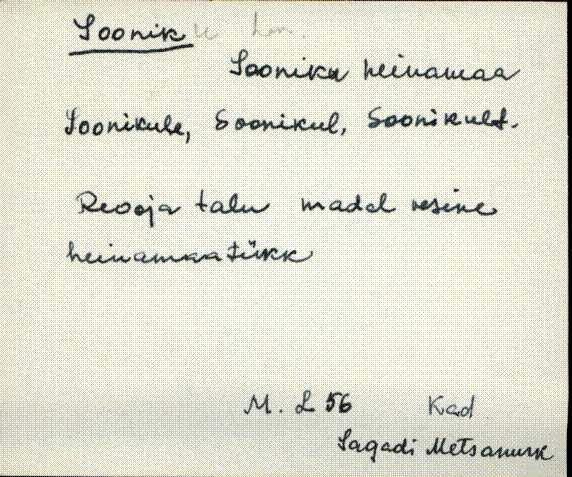 Sooniku hm.
Sooniku heinamaa
Soonikule, Soonikul, Soonikult.
Reooja talu madal vesine
heinamaatükk
M. L 56 Kad
Sagadi Metsanurk